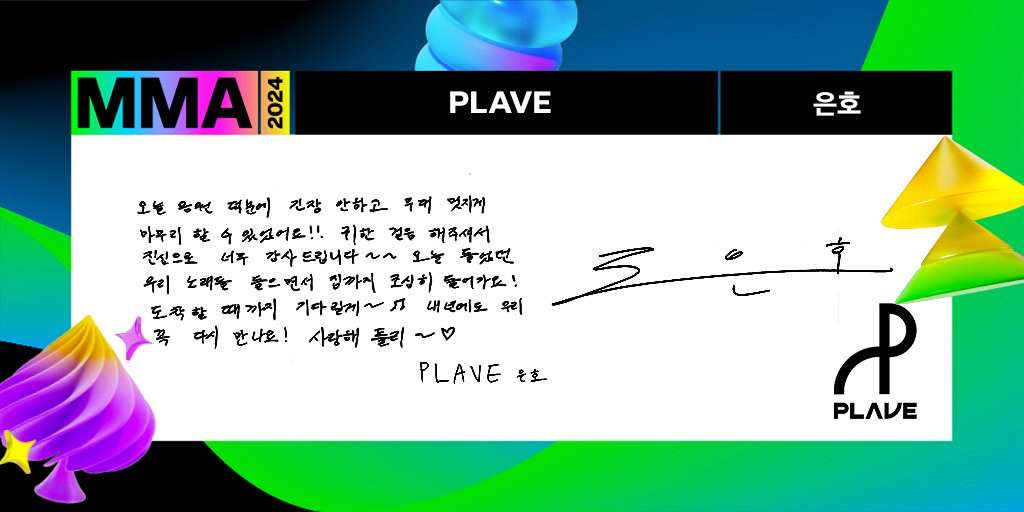 MMA 2024
PLAVE
은호
오늘 응원 덕분에 긴장 안하고 무대 멋지게
마무리 할 수 있었어요!! 귀한 걸음 해주셔서
진심으로 너무 감사드립니다~~ 오늘 들었던
우리 노래들 들으면서 집까지 조심히 들어가요!
도착할 때까지 기다릴게~♫ 내년에도 우리
꼭 다시 만나요! 사랑해 플리~♡
PLAVE 은호
은호
PLAVE